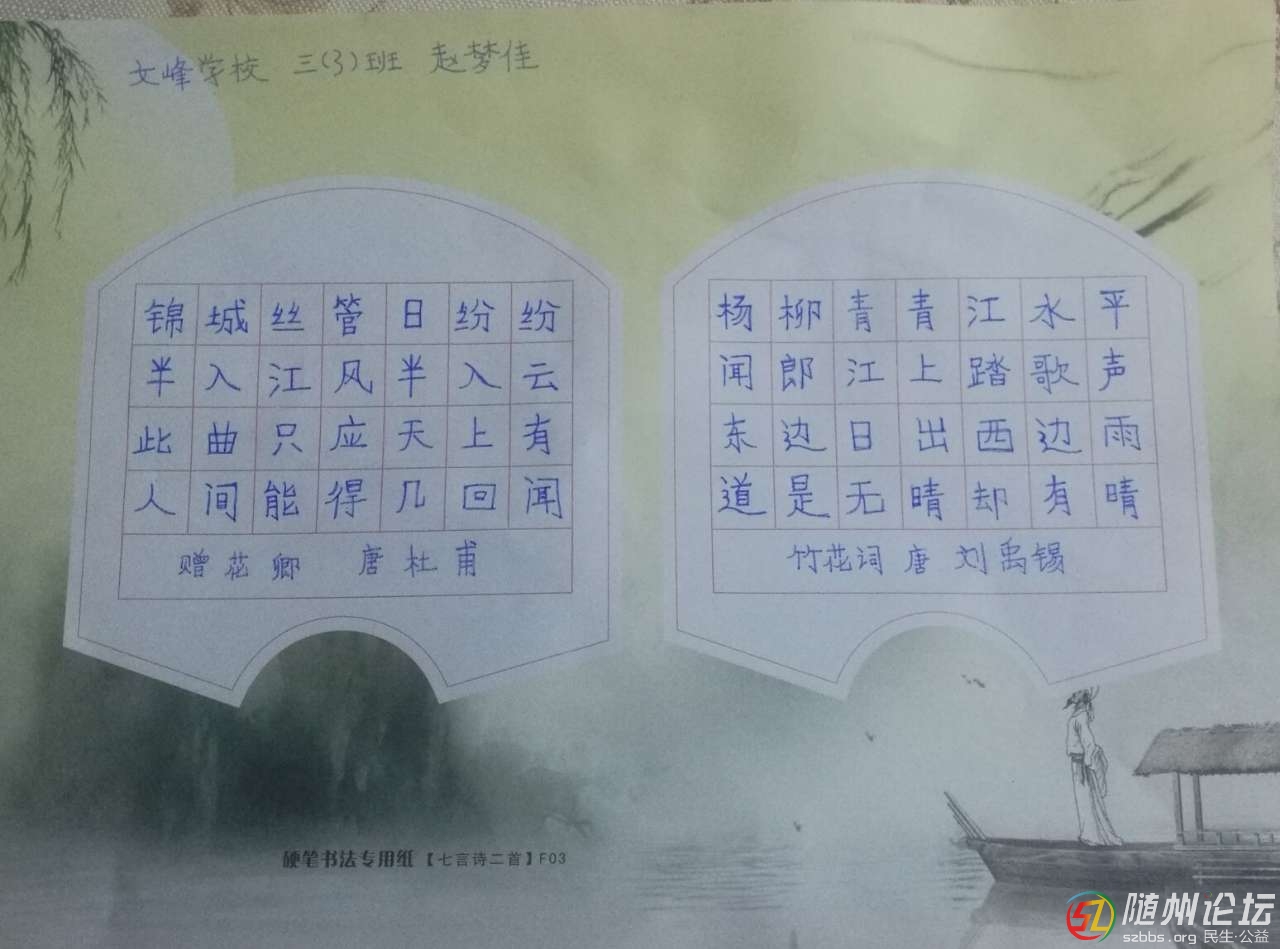 文峰学校 三(3)班 赵梦佳
锦城丝管日纷纷
半入江风半入云
此曲只应天上有
人间能得几回闻
赠花卿 唐 杜甫
杨柳青青江水平
闻郎江上踏歌声
东边日出西边雨
道是无晴却有晴
竹花词 唐 刘禹锡
硬笔书法专用纸【七言诗二首】F03
随州论坛
szbbs.org 民生·公益